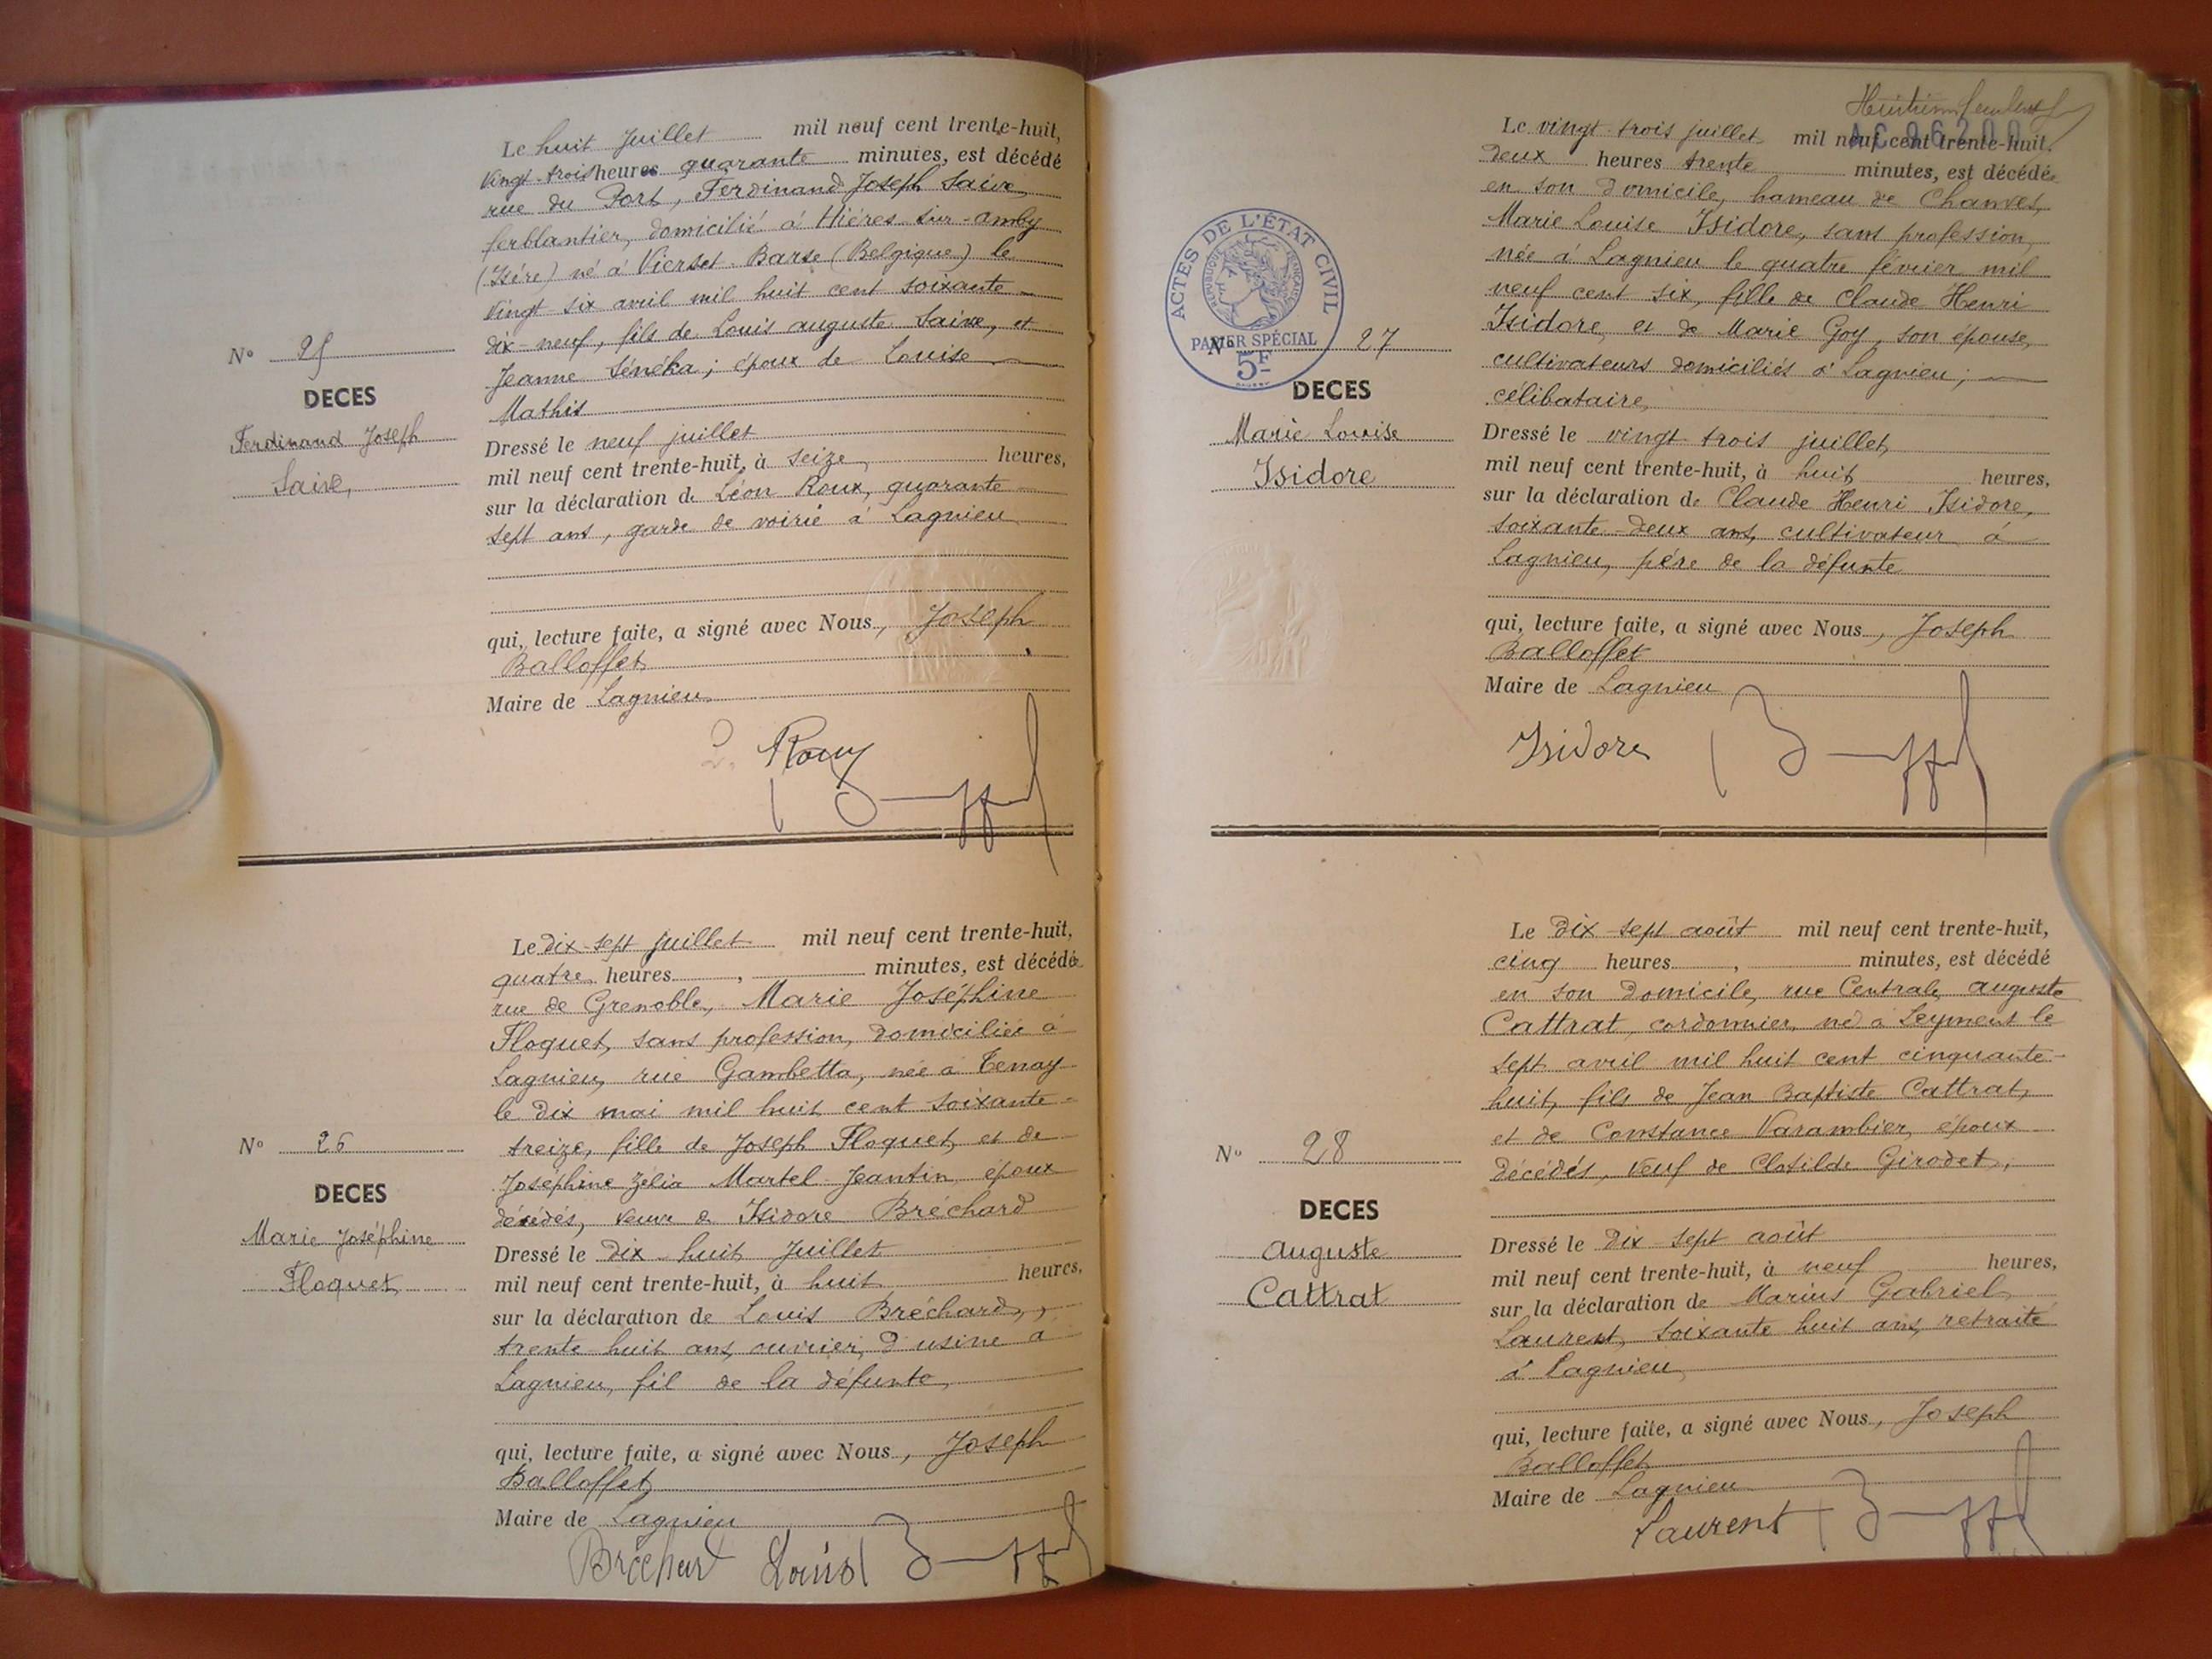 Le huit Juillet mil neuf cent trente-huit,
vingt-trois heures quarante minutes, est décédé
rue du Port, Ferdinand Joseph Saive
ferblantier, domicilié à Hières-sur-amby
(Isère) né à Vierset-Barse (Belgique) le
vingt-six avril mil huit cent soixante
dix-neuf, fils de Louis auguste Saive, et
Jeanne Sénéka; époux de Louise
Mathis
Dressé le neuf juillet
mil neuf cent trente-huit, à seize heures,
sur la déclaration de Léon Roux, quarante
sept ans, garde de voirie à Lagnieu
qui, lecture faite, a signé avec Nous, Joseph
Balloffet
Maire de Lagnieu
Nº 25
DECES
Ferdinand Joseph
Saive
L. Roux
Le dix-sept juillet mil neuf cent trente-huit,
quatre heures, minutes, est décédée
rue de Grenoble, Marie Joséphine
Floquet, sans profession, domiciliée à
Lagnieu, rue Gambetta, née à Tenay
le dix mai mil huit cent soixante-
treize, fille de Joseph Floquet, et de
Joséphine Zélia Martel-Jeantin, époux
décédés, veuve de Isidore Bréchard
Dressé le dix huit Juillet
mil neuf cent trente-huit, à huit heures,
sur la déclaration de Louis Bréchard,
trente-huit ans, ouvrier d'usine à
Lagnieu, fil de la défunte
qui, lecture faite, a signé avec Nous, Joseph
Balloffet
Maire de Lagnieu
Nº 26
DECES
Marie Joséphine
Floquet
Bréchard Louis
AC 26200
Le vingt-trois juillet mil neuf cent trente-huit,
deux heures trente minutes, est décédée
en son domicile, hameau de Chanves,
Marie Louise Isidore, sans profession,
née à Lagnieu le quatre février mil
neuf cent six, fille de Claude Henri
Isidore, et de Marie Goy, son épouse,
cultivateurs domiciliés à Lagnieu;
célibataire,
Dressé le vingt-trois juillet,
mil neuf cent trente-huit, à huit heures,
sur la déclaration de Claude Henri Isidore,
soixante-deux ans, cultivateur à
Lagnieu, père de la défunte
qui, lecture faite, a signé avec Nous, Joseph
Balloffet
Maire de Lagnieu
ACTES DE L'ÉTAT CIVIL
RÉPUBLIQUE FRANÇAISE
PAPIER SPÉCIAL
5F
Nº 27
DECES
Marie Louise
Isidore
Isidore
Le dix-sept août mil neuf cent trente-huit,
cinq heures, minutes, est décédé
en son domicile, rue Centrale, auguste
Cattrat, cordonnier, né à Leyment le
sept avril mil huit cent cinquante-
huit, fils de Jean Baptiste Cattrat,
et de Constance Varambier, époux
décédés, veuf de Clotilde Girodet,
Dressé le dix-sept août
mil neuf cent trente-huit, à neuf heures,
sur la déclaration de Marius Gabriel
Laurent, soixante huit ans, retraité
à Lagnieu
qui, lecture faite, a signé avec Nous, Joseph
Balloffet
Maire de Lagnieu
Nº 28
DECES
auguste
Cattrat
Laurent